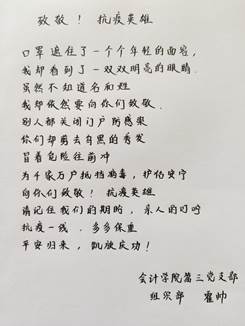 致敬！抗疫英雄
口罩遮住了一个个年轻的面容，
我却看到了一双双明亮的眼睛.
虽然不知道名和姓
我却依然要向你们致敬.
别人都关闭门户防感染
你们却剪去乌黑的秀发
冒着危险往前冲
为千家万户抵挡病毒，护佑安宁
向你们致敬！抗疫英雄
请记住我们的期盼，亲人的叮咛
抗疫一线.多多保重
平安归来，凯旋庆功！
会计学院第三党支部
组织部 霍帅